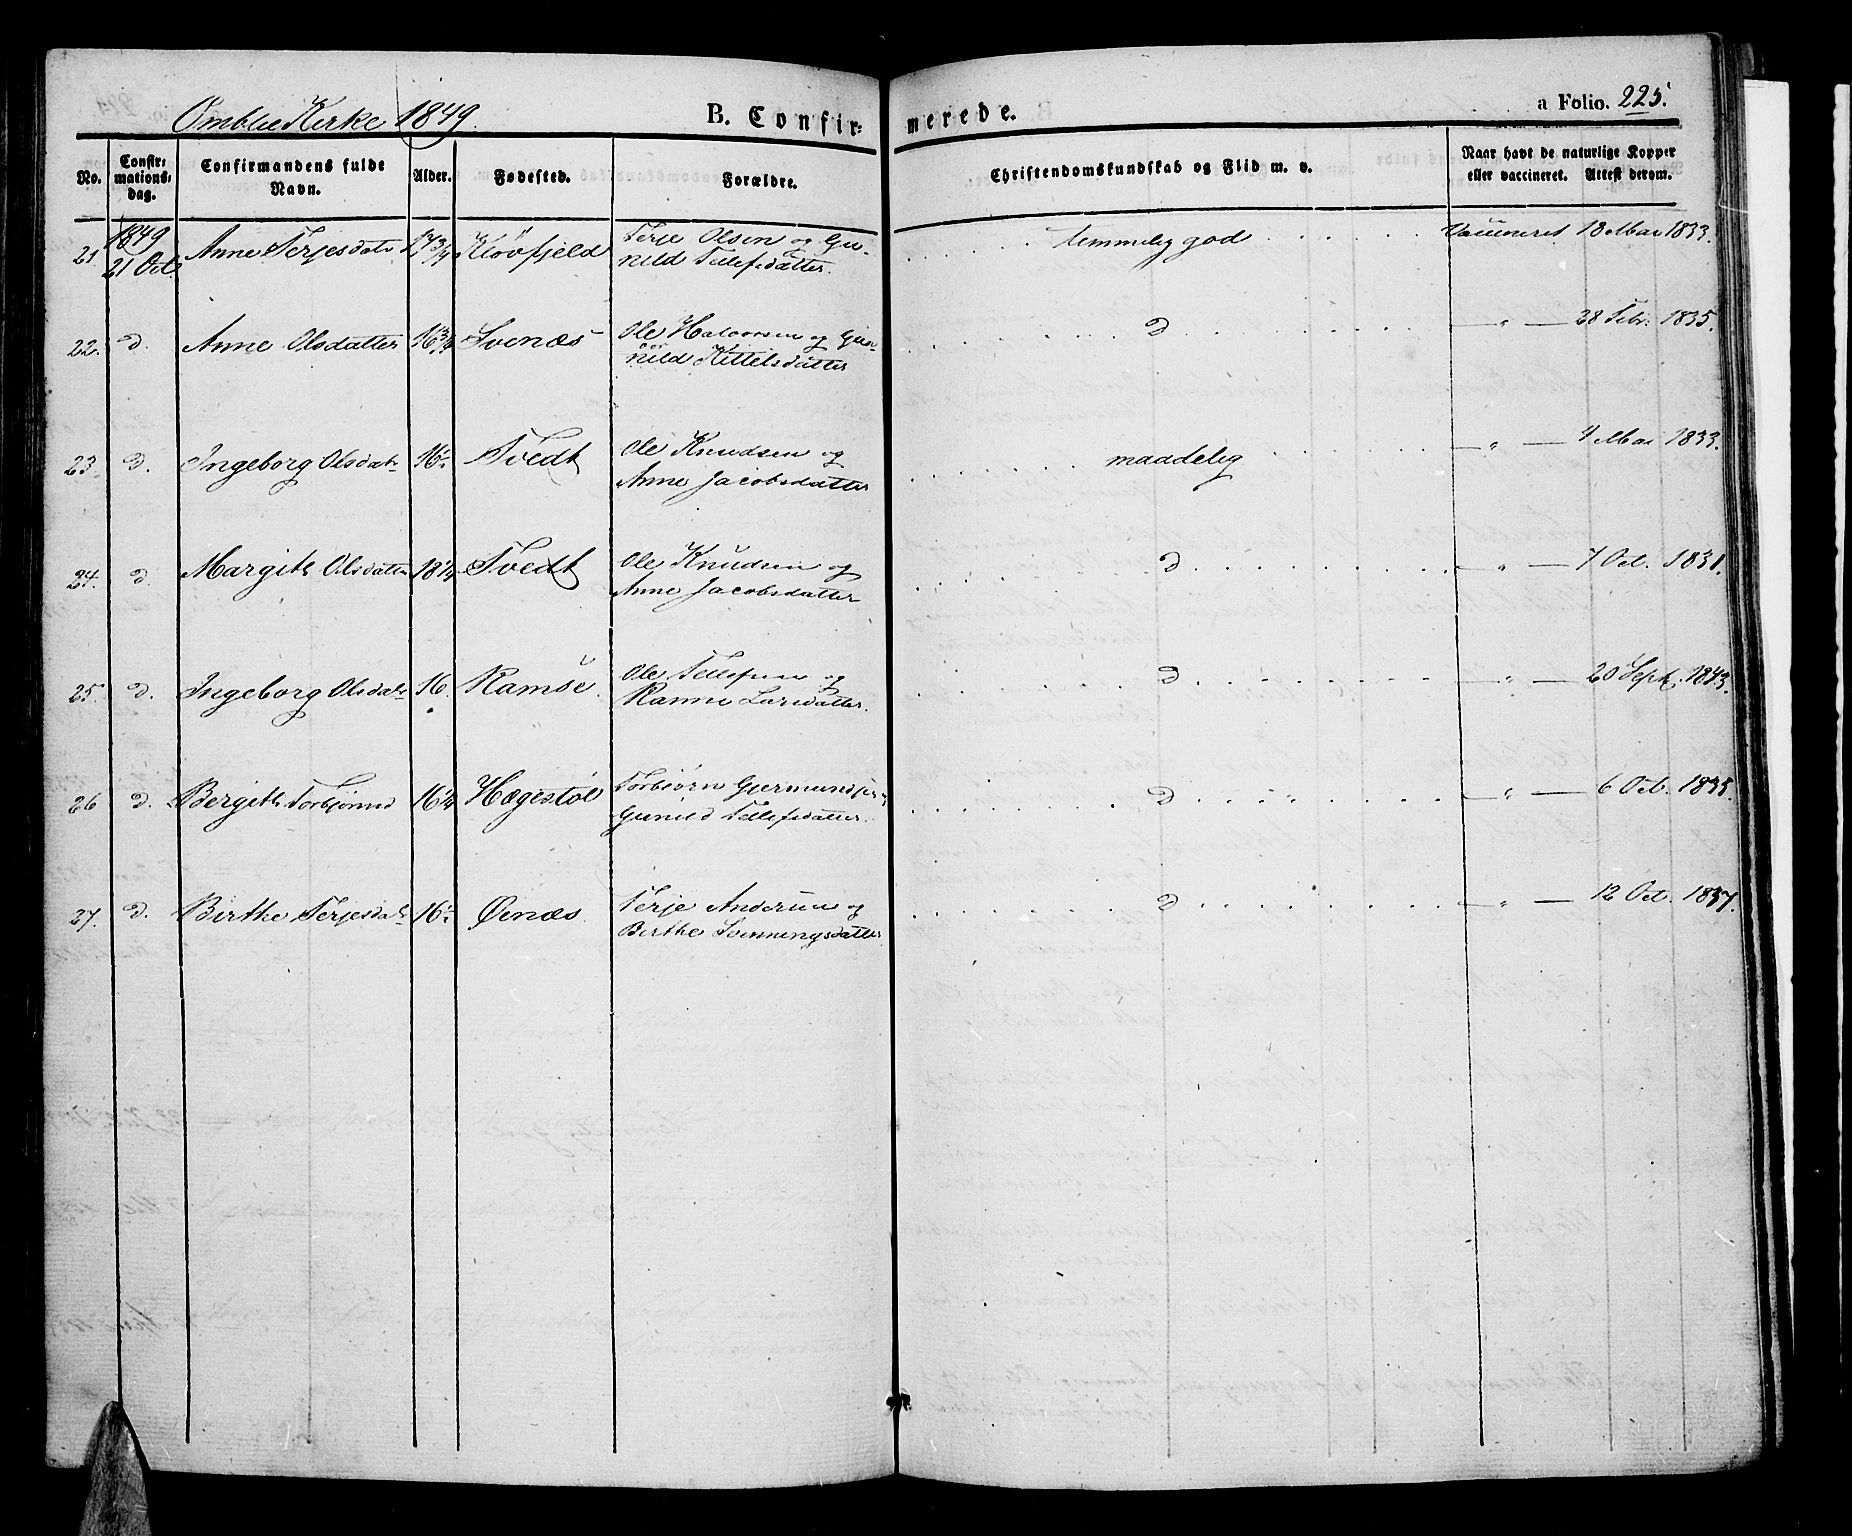 Omblie Kirke 1849. B. Confirmerede. a Folio. 225.
No. Confirmationsdag. Confirmandens fulde Navn. Alder. Fødested. Forældre. Christendomskundskab og Flid m. v. Naar havt de naturlige Kopper eller vaccineret. Attest derom.
21. 1849 21 Oct. Anne Terjesdatr 17 3/4 Kløvfjeld Terje Olsen og Gu-
nild Tellefsdatter. temmelig god Vaccineret 18 Mai 1833.
22. d. Anne Olsdatter 16 3/4 Svenæs Ole Halvorsen og Gun-
nild Kittelsdatter d — " — 28 Febr. 1835.
23. d. Ingeborg Olsdatr 16 Tvedt Ole Knudsen og
Anne Jacobsdatter maadelig — " — 4 Mai 1833.
24. d. Margith Olsdatter 18 1/4 Tvedt Ole Knudsen og
Anne Jacobsdatter d — " — 7 Oct. 1831.
25. d. Ingeborg Olsdatr 16. Ramse. Ole Tellefsen og
Larsdatter. d — " — 20 Sept. 1843.
26 d. Bergith Torbjørnsd 16 1/4 Hægestøl Torbjørn Gjermundsen
Gunild Tellefsdatter. d — " — 6 Oct. 1835.
27. d. Birthe Terjesdatr 16 Øenæs. Terje Andersen og
Birthe Svenningsdatter d — " — 12 Oct. 1837.